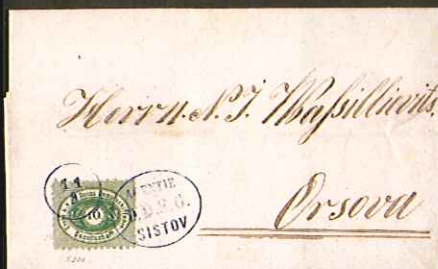 Herrn N. J. Waſsillievits
Orsova
11
10
AGENTIE
D.D.S.G.
SISTOV